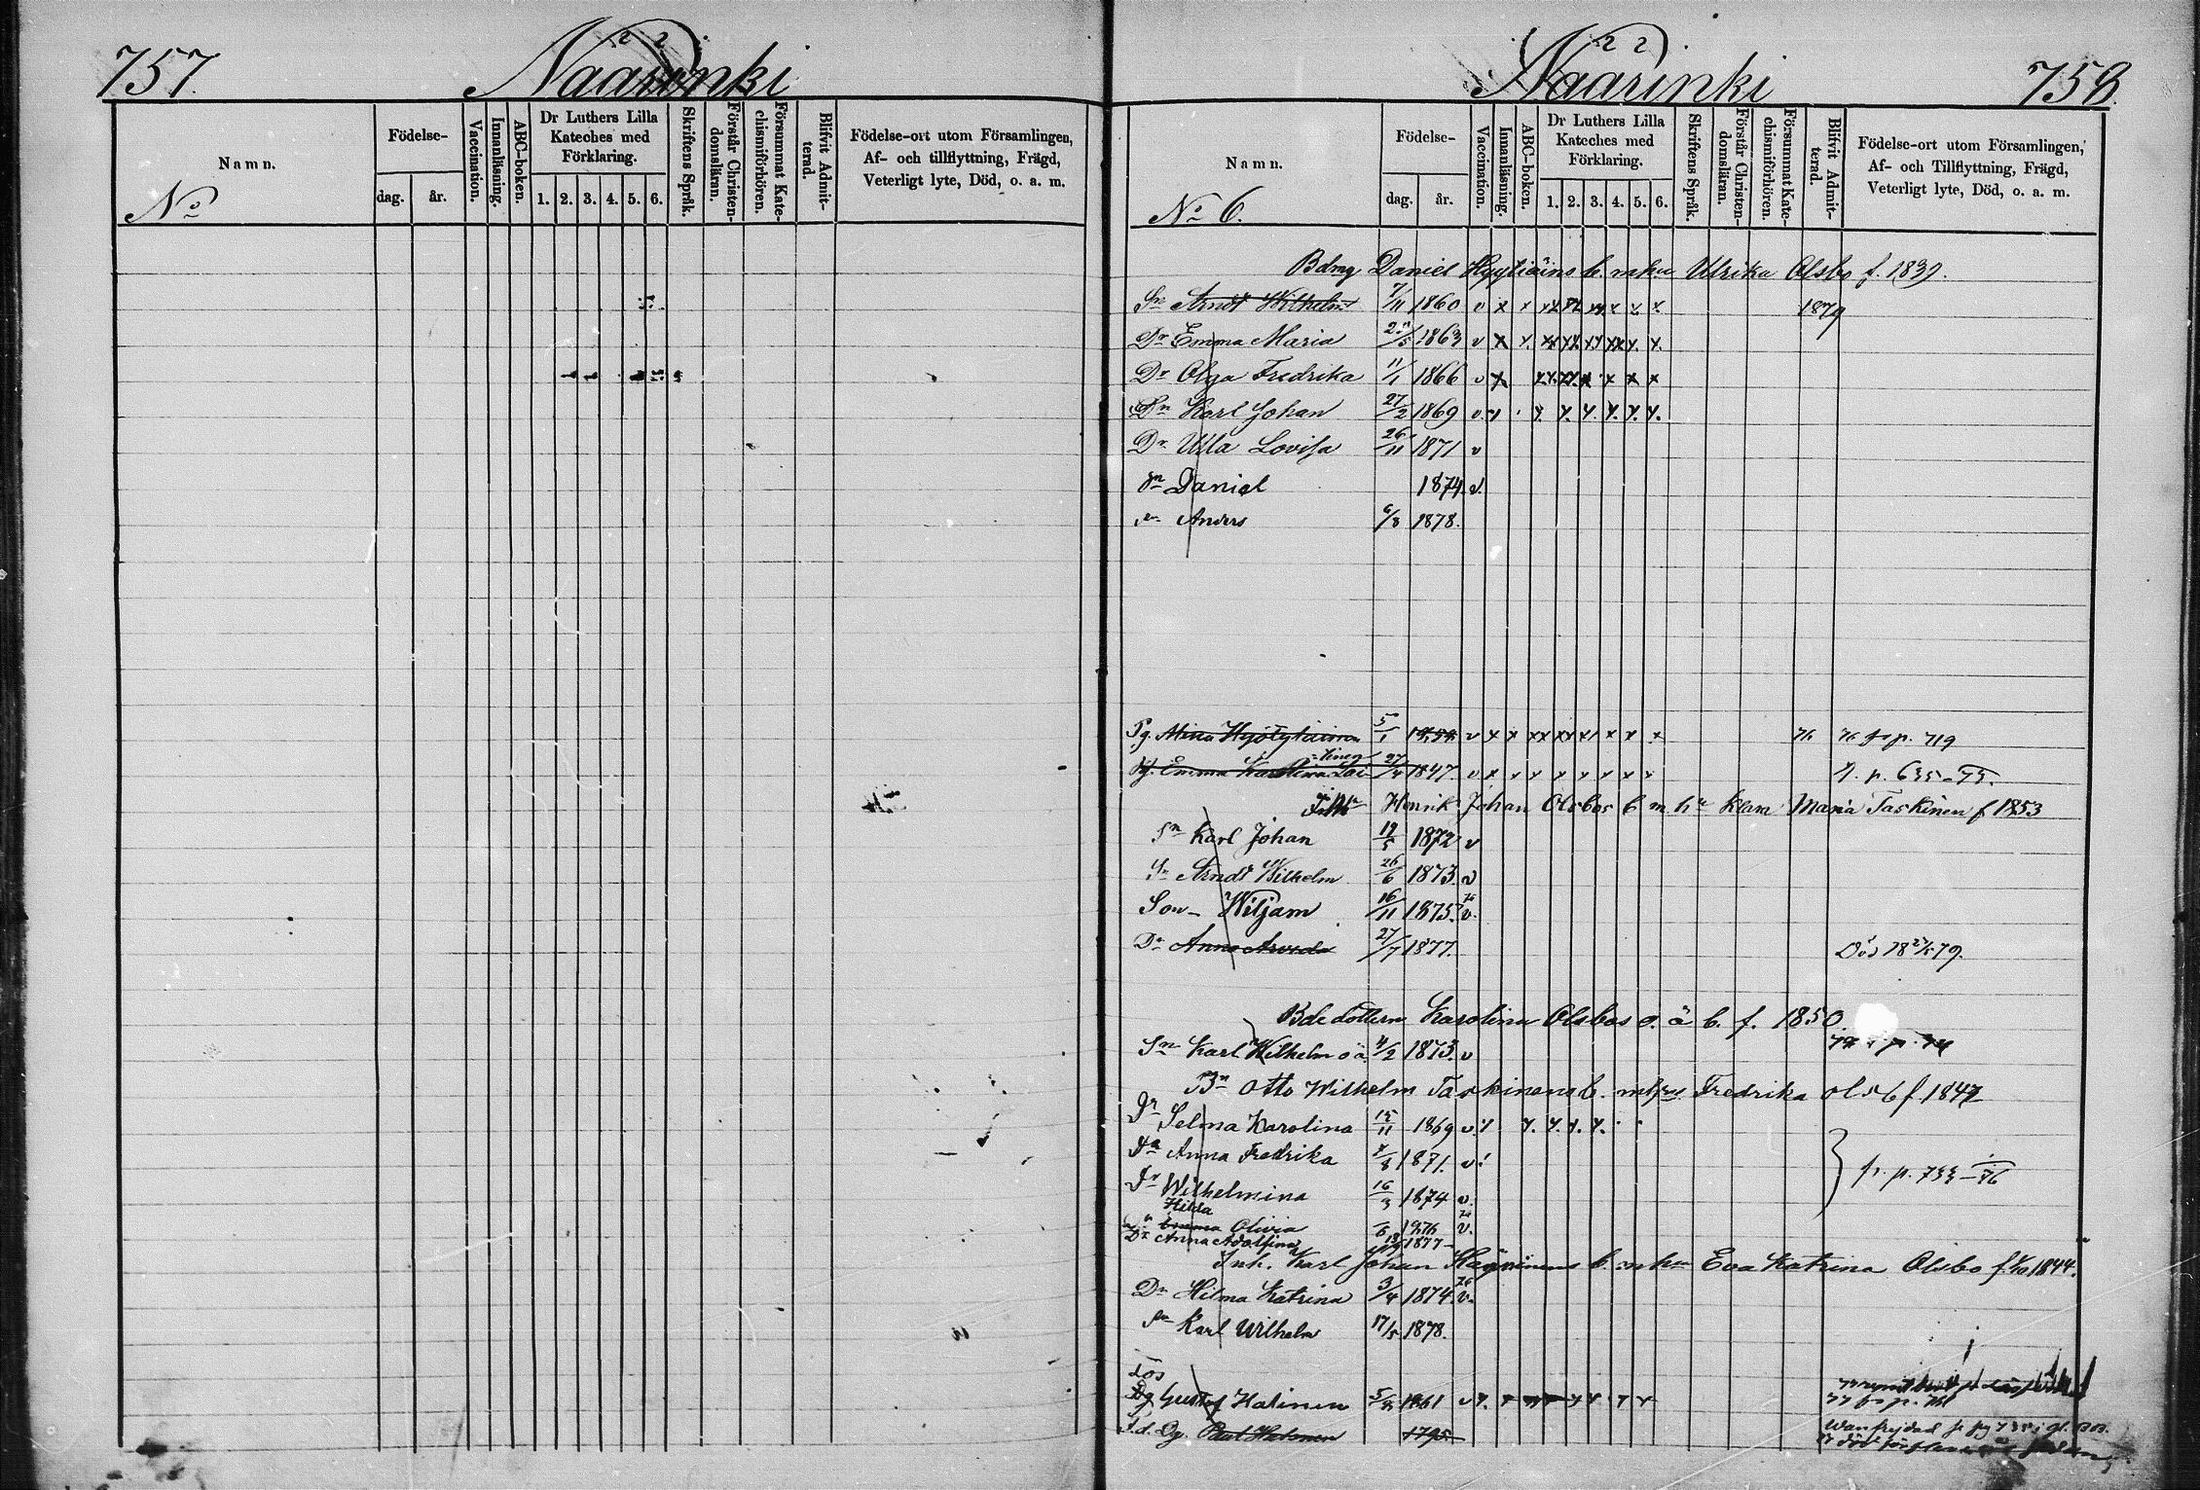 757.
Naarinki
Namn.
Födelse-
dag.
år.
Vaccination.
Innanläsning.
ABC-boken.
Dr Luthers Lilla
Kateches med
Förklaring.
1. 2. 3. 4. 5. 6.
Skriftens Språk.
Förstår Christen-
domsläran.
Försummat Kate-
chismiförhören.
Blifvit Admit-
terad.
Födelse-ort utom Församlingen,
Af- och tillflyttning, Frägd,
Veterligt lyte, Död, o. a. m.
No
Naarinki
758.
Namn.
Födelse-
dag.
år.
Vaccination.
Innanläsning.
ABC-boken.
Dr Luthers Lilla
Kateches med
Förklaring.
1. 2. 3. 4. 5. 6.
Skriftens Språk.
Förstår Christen-
domsläran.
Försummat Kate-
chismiförhören.
Blifvit Admit-
terad.
Födelse-ort utom Församlingen,
Af- och Tillflyttning, Frägd,
Veterligt lyte, Död, o. a. m.
No 6.
Bdmg Daniel Hyytiäins b. mhu Ulrika Olsbo f. 1839.
Sn Arndt Wilhelm 7/11 1860 v x x 1879
Dr Emma Maria 1863 v x
Dr Olga Fredrika 11/1 1866 v x
Sn Karl Johan 27/2 1869 v
Dr Ulla Lovisa 26/11 1871 v
Sn Daniel 1874. v.
Sn Anders 6/8 1878.
Pg. Mina 5/1 v x x 76 p. 719
Pg. Emma Karolina 27/4 1847. v x x x x x x x x p. 635
Henrik Johan Olsbos b m hu Klara Maria Taskinen f 1853
Sn Karl Johan 19/5 1872 v
Sn Arndt Wilhelm 26/6 1873 v
Son Wiljam 16/11 1875. v.
Dr Anna 27/7 1877. Död
Bde dottern Karolina Olsbos o. ä b. f. 1850.
Sn Karl Wilhelm o ä 4/2 1873. v
Bn Otto Wilhelm Taskinens b. mhu Fredrika olsb f 1847
Dr Selma Karolina 15/11 1869 v
Dr Anna Fredrika 1871. v
Dr Wilhelmina 16/3 1874 v. fr. p. 733
Hilda
Emma Olivia v.
Dr Anna Adolfina 1877
Inh. Karl Johan b. mhu Eva Katrina Olsbo f. 1844.
Dr Hilma Katrina 3/4 1874 v.
Sn Karl Wilhelm 17/5 1878.
Los
Dg Gustaf Halinen 1861 v
Dg. Paul Halinen 1795